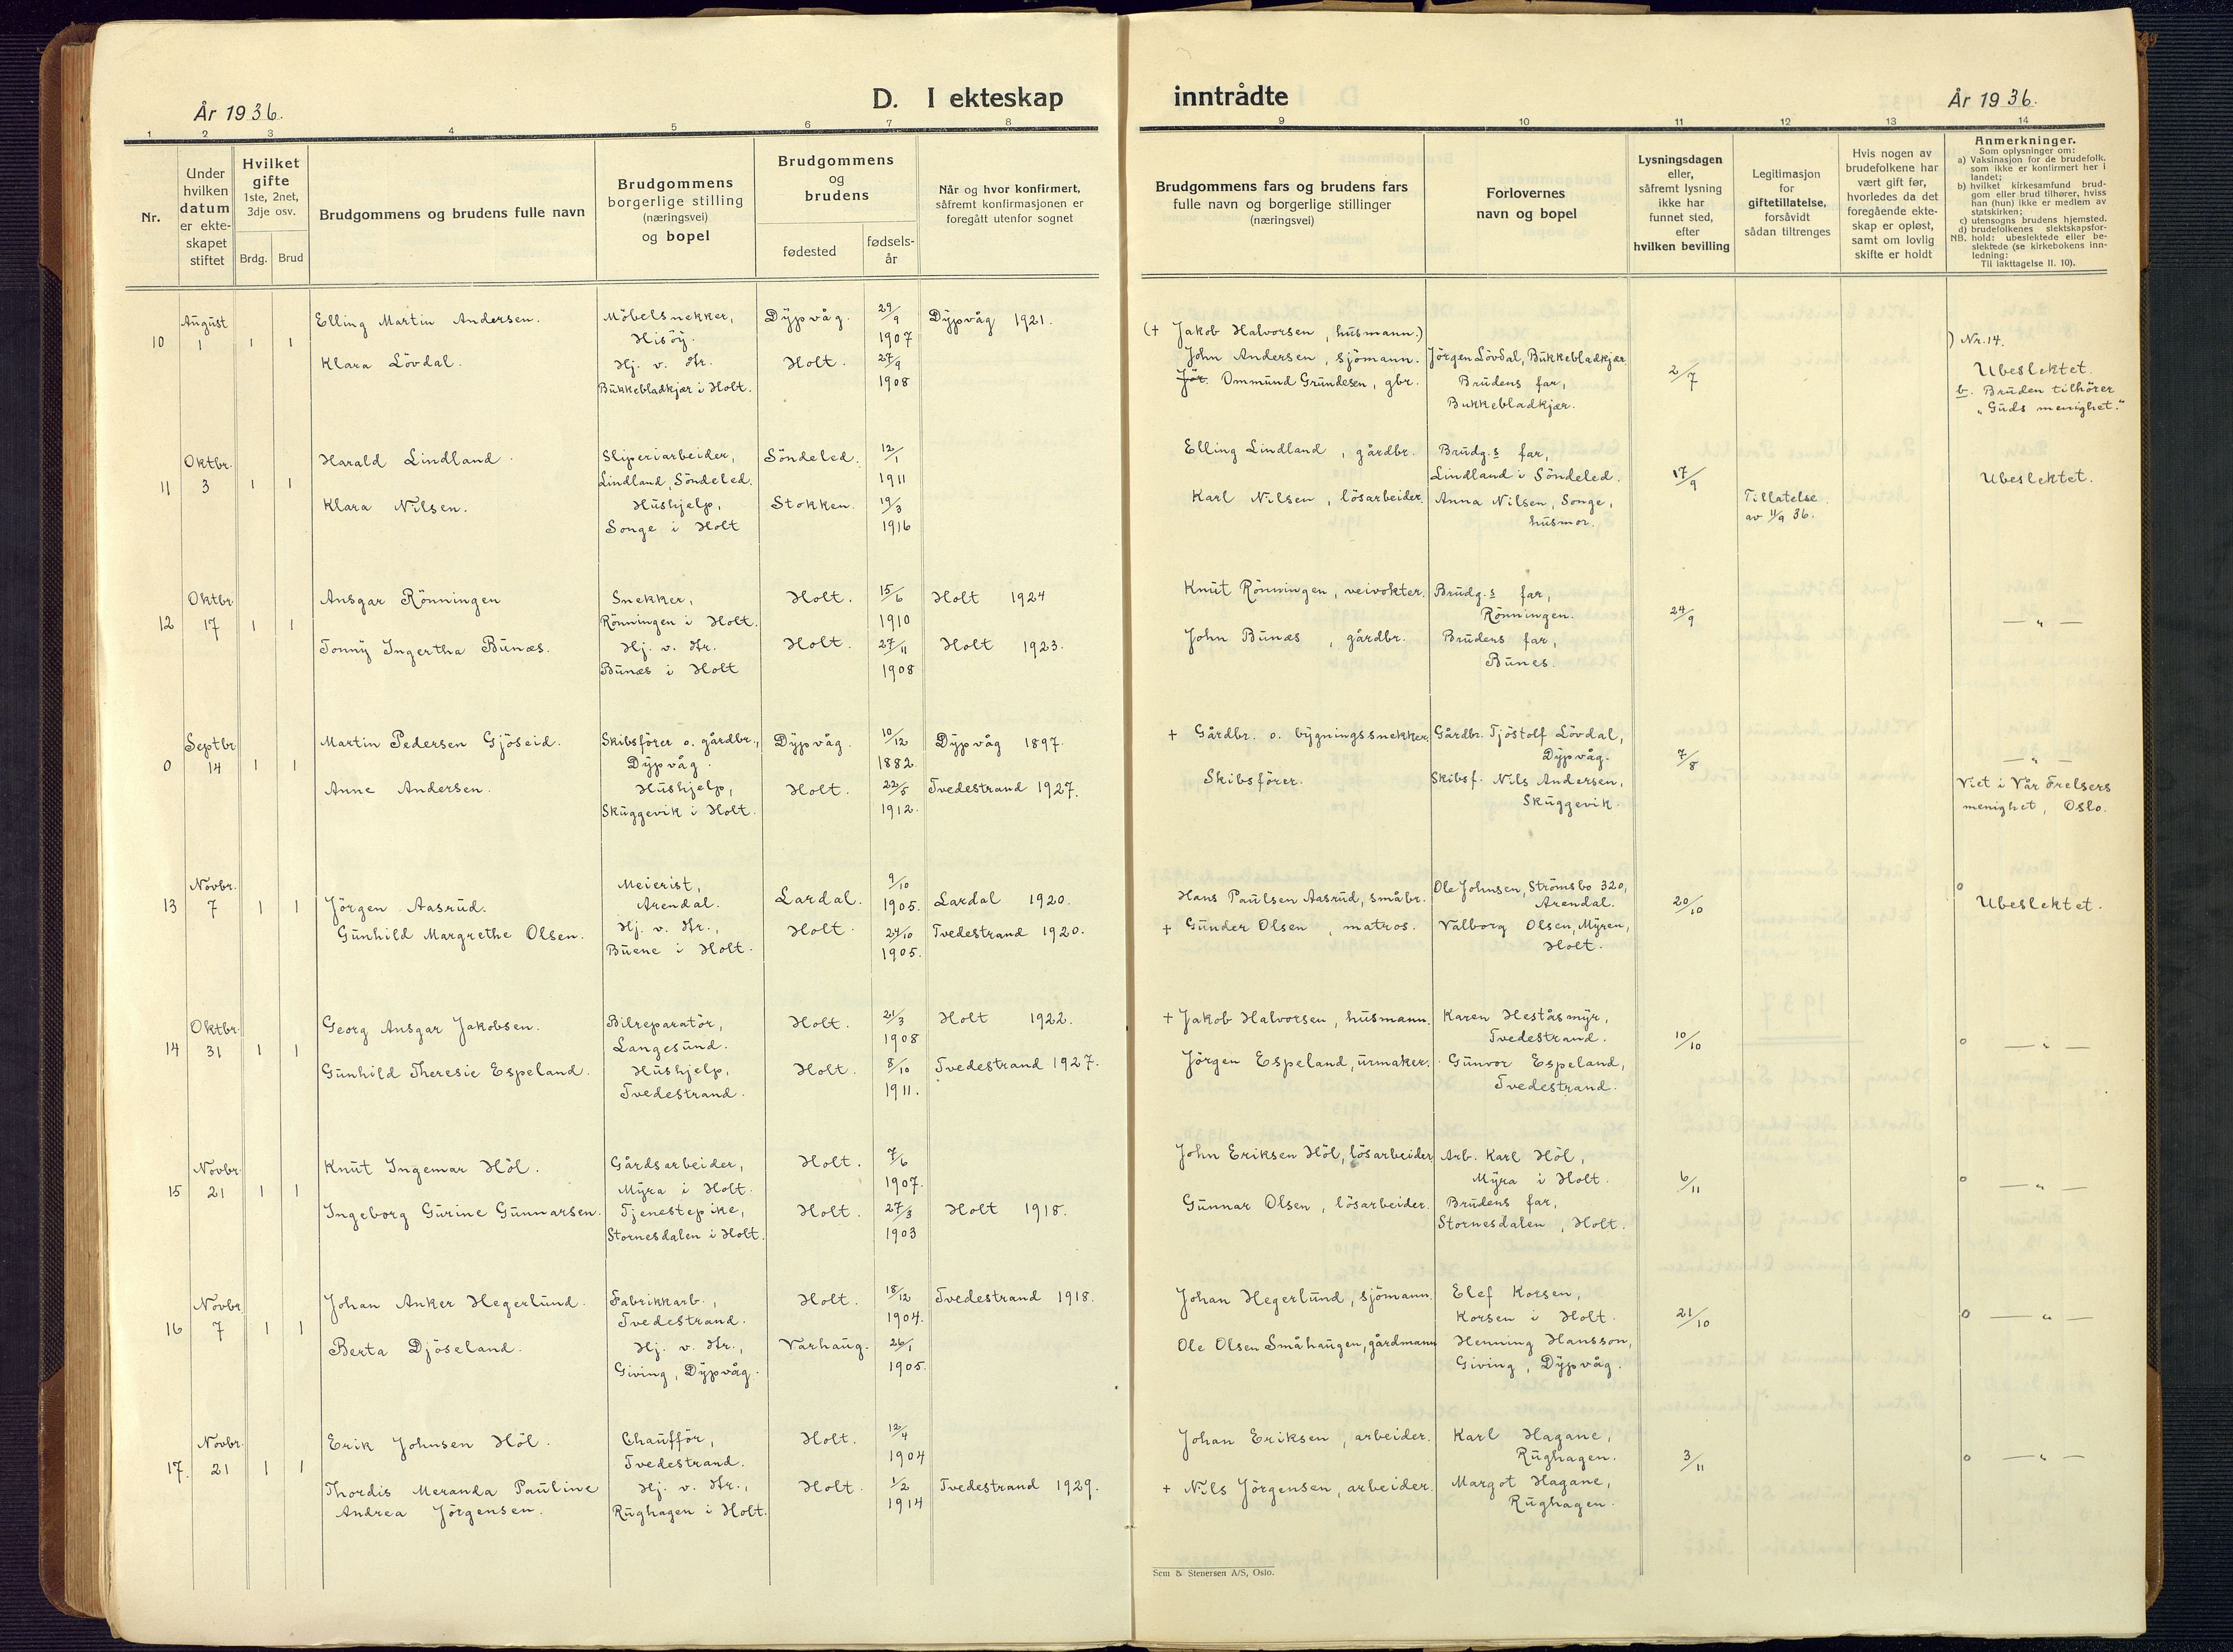 År 1936.
D. I ekteskap
inntrådte
År 1936.
1 2 3 4 5 6 7 8 9 10 11 12 13 14
Nr.
Under
hvilken
datum
er ekte-
skapet
stiftet
Hvilket
gifte
1ste, 2net,
3dje osv.
Brdg. Brud
Brudgommens og brudens fulle navn
Brudgommens
borgerlige stilling
(næringsvei)
og bopel
Brudgommens
og
brudens
fødested
fødsels-
år
Når og hvor konfirmert,
såfremt konfirmasjonen er
foregått utenfor sognet
Brudgommens fars og brudens fars
fulle navn og borgerlige stillinger
(næringsvei)
Forlovernes
navn og bopel
Lysningsdagen
eller,
såfremt lysning
ikke har
funnet sted,
efter
hvilken bevilling
Legitimasjon
for
giftetillatelse,
forsåvidt
sådan tiltrenges
Hvis nogen av
brudefolkene har
vært gift før,
hvorledes da det
foregående ekte-
skap er opløst,
samt om lovlig
skifte er holdt
Anmerkninger.
Som oplysninger om:
a) Vaksinasjon for de brudefolk,
som ikke er konfirmert her i
landet;
b) hvilket kirkesamfund brud-
gom eller brud tilhører, hviss
han (hun) ikke er medlem av
statskirken;
c) utensogns brudens hjemsted.
d) brudefolkenes slektskapsfor-
NB. hold: ubeslektede eller be-
slektede (se kirkebokens inn-
ledning:
Til iakttagelse II. 10).
10 August 1 1 1
Elling Martin Andersen. Möbelsnekker, Hisöy. Dypvåg. 29/9 1907 Dypvåg 1921.
Klara Lövdal. Hj. v. Hr. Bukkebladkjær i Holt. Holt. 27/9 1908
(+ Jakob Halvorsen, husmann.)
John Andersen, sjömann. Jörgen Lövdal, Bukkebladkjær
Jör. Ommund Grundesen, gbr. Brudens far, Bukkebladkjær.
2/7
) Nr. 14.
Ubeslektet.
b. Bruden tilhörer
"Guds menighet."
11 Oktbr. 3 1 1
Harald Lindland. Sliperiarbeider, Lindland, Söndeled. Söndeled. 12/1 1911
Klara Nilsen. Hushjelp, Songe i Holt Stokken. 19/3 1916
Elling Lindland, gårdbr. Brudg.s far, Lindland i Söndeled.
Karl Nilsen, lösarbeider. Anna Nilsen, Songe, husmor.
17/9
Tillatelse
av 11/9 36.
Ubeslektet.
12 Oktbr. 17 1 1
Ansgar Rönningen Snekker, Rönningen i Holt. Holt. 15/6 1910 Holt 1924
Tonny Ingertha Bunæs. Hj. v. Hr. Bunæs i Holt Holt. 27/11 1908 Holt 1923.
Knut Rönningen, veivokter. Brudg.s far, Rönningen.
John Bunæs, gårdbr. Brudens far, Bunes.
24/9
— " —
0 Septbr 14 1 1
Martin Pedersen Gjöseid. Skibsförer o. gårdbr., Dypvåg. Dypvåg. 10/12 1882. Dypvåg 1897.
Anne Andersen. Hushjelp, Skuggevik i Holt. Holt. 22/5 1912. Tvedestrand 1927.
+ Gårdbr. o. bygningssnekker. Gårdbr. Tjöstolf Lövdal, Dypvåg.
Skibsförer. Skibsf. Nils Andersen, Skuggevik.
7/8
— " —
Viet i Vår Frelsers
menighet, Oslo.
13 Novbr. 7 1 1
Jörgen Aasrud. Meierist, Arendal. Lardal. 9/10 1905. Lardal 1920.
Gunhild Margrethe Olsen. Hj. v. Hr., Buene i Holt. Holt. 24/10 1905. Tvedestrand 1920.
Hans Paulsen Aasrud, småbr. Ole Johnsen, Strömsbo 320, Arendal.
+ Gunder Olsen, matros. Valborg Olsen, Myren, Holt.
20/10
° Ubeslektet.
14 Oktbr. 31 1 1
Georg Ansgar Jakobsen. Bilreparatör, Langesund. Holt. 21/3 1908 Holt 1922.
Gunhild Theresie Espeland. Hushjelp, Tvedestrand. Holt. 8/10 1911. Tvedestrand 1927.
+ Jakob Halvorsen, husmann. Karen Heståsmyr, Tvedestrand.
Jörgen Espeland, urmaker. Gunvor Espeland, Tvedestrand.
10/10
° — " —
15 Novbr. 21 1 1
Knut Ingemar Höl. Gårdsarbeider, Myra i Holt. Holt. 7/6 1907.
Ingeborg Gurine Gunnarsen. Tjenestepike, Stornesdalen i Holt. Holt. 27/3 1903 Holt 1918.
John Eriksen Höl, lösarbeider Arb. Karl Höl, Myra i Holt.
Gunnar Olsen, lösarbeider. Brudens far, Stornesdalen, Holt.
6/11
° — " —
16 Novbr. 7 1 1
Johan Anker Hegerlund. Fabrikkarb., Tvedestrand. Holt. 18/12 1904. Tvedestrand 1918.
Berta Djöseland. Hj. v. Hr., Giving, Dypvåg. Varhaug. 26/1 1905.
Johan Hegerlund, sjömann. Elef Korsen, Korsen i Holt.
Ole Olsen Småhaugen, gårdmann Henning Hansson, Giving, Dypvåg.
21/10
° — " —
17. Novbr. 21 1 1
Erik Johnsen Höl. Chaufför, Tvedestrand. Holt. 12/4 1904
Thordis Meranda Pauline Andrea Jörgensen. Hj. v. Hr., Rughagen i Holt. Holt. 1/2 1914 Tvedestrand 1929.
Johan Eriksen, arbeider. Karl Hagane, Rughagen.
+ Nils Jörgensen, arbeider. Margot Hagane, Rughagen.
3/11
° — " —
Sem & Stenersen A/S, Oslo.